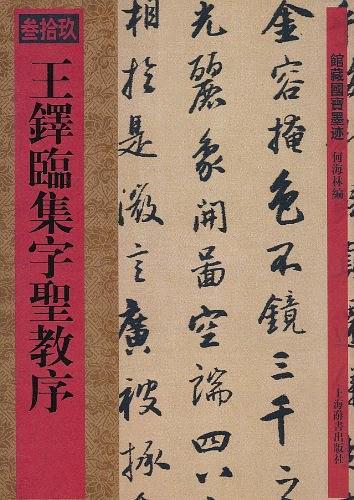 館藏國寶墨迹
何海林編
上海辭書出版社
金容掩色不鏡三千之
光麗象開啚空端四八
相於是微言廣被拯
叁拾玖
王鐸臨集字聖教序